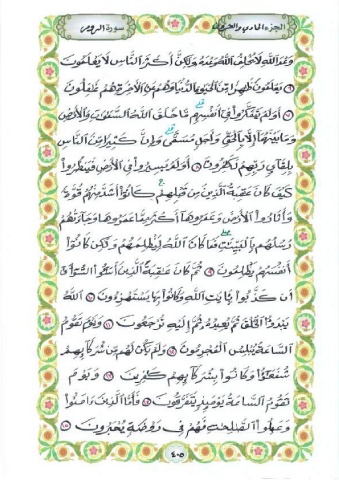 الجزء الحادي والعشرون
سورة الروم
وعد الله لا يخلف الله وعده ولكن أكثر الناس لا يعلمون ٦
يعلمون ظهرا من الحيوة الدنيا وهم عن الأخرة هم غفلون ٧
أولم يتفكروا في أنفسهم ما خلق الله السموت والأرض
وما بينهما إلا بالحق وأجل مسمى وإن كثيرا من الناس
بلقاي ربهم لكفرون ٨ أولم يسيروا في الأرض فينظروا
كيف كان عقبة الذين من قبلهم كانوا أشد منهم قوة
وأثاروا الأرض وعمروها أكثر مما عمروها وجاءتهم
رسلهم بالبينت فما كان الله ليظلمهم ولكن كانوا
أنفسهم يظلمون ٩ ثم كان عقبة الذين أسئوا السوأى
أن كذبوا بايت الله وكانوا بها يستهزءون ١٠ الله
يبدؤا الخلق ثم يعيده ثم إليه ترجعون ١١ ويوم تقوم
الساعة يبلس المجرمون ١٢ ولم يكن لهم من شركائهم
شفعؤا وكانوا بشركائهم كفرين ١٣ ويوم
تقوم الساعة يومئذ يتفرقون ١٤ فأما الذين ءامنوا
وعملوا الصلحت فهم في روضة يحبرون ١٥
٤٠٥